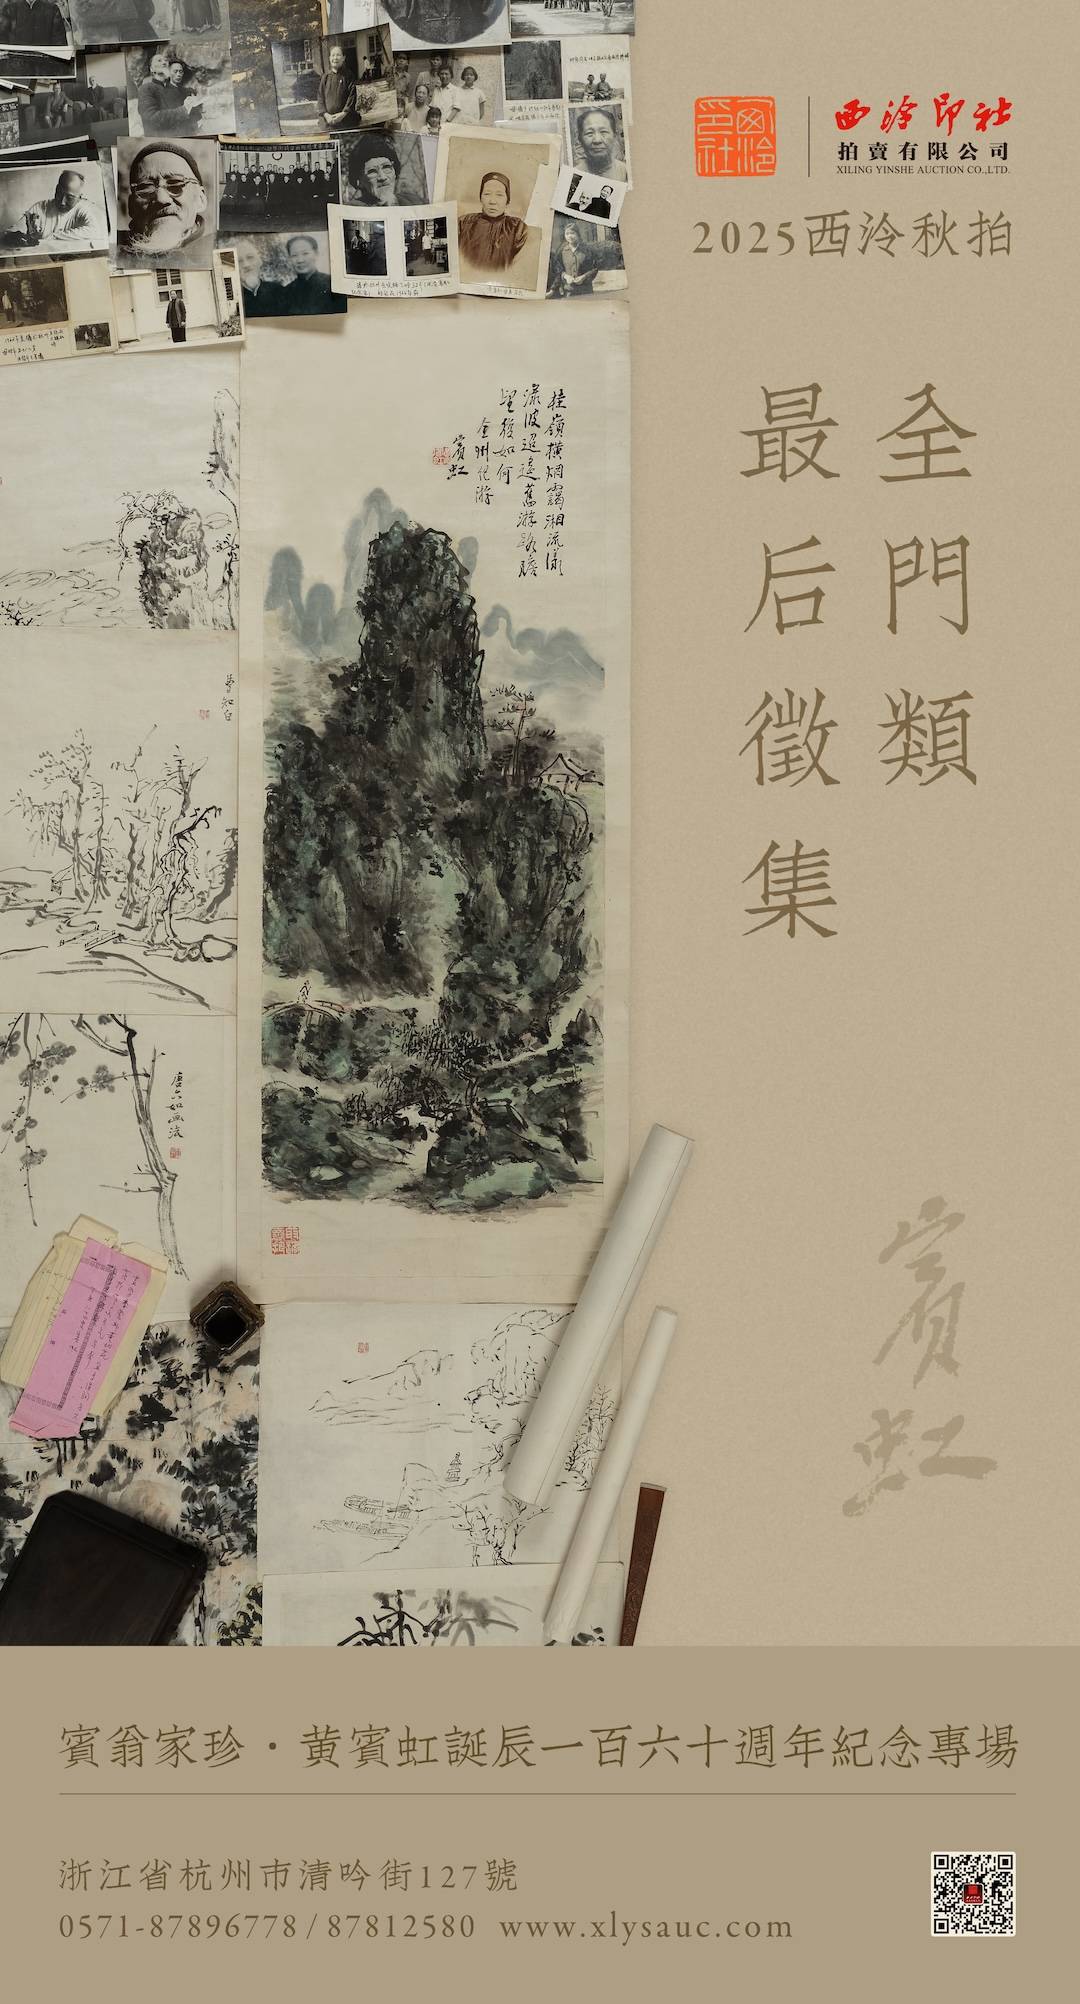 西泠印社
西泠印社
拍賣有限公司
XILING YINSHE AUCTION CO.,LTD.
2025西泠秋拍
全門類
最后徵集
桂嶺橫烟靄湘流漾
漾波迢遞舊游跂瞻
望後如何
全州紀游
賓虹
曹知白
唐六如畫法
賓虹
賓翁家珍·黄賓虹誕辰一百六十週年紀念專場
浙江省杭州市清吟街127號
0571-87896778 / 87812580 www.xlysauc.com